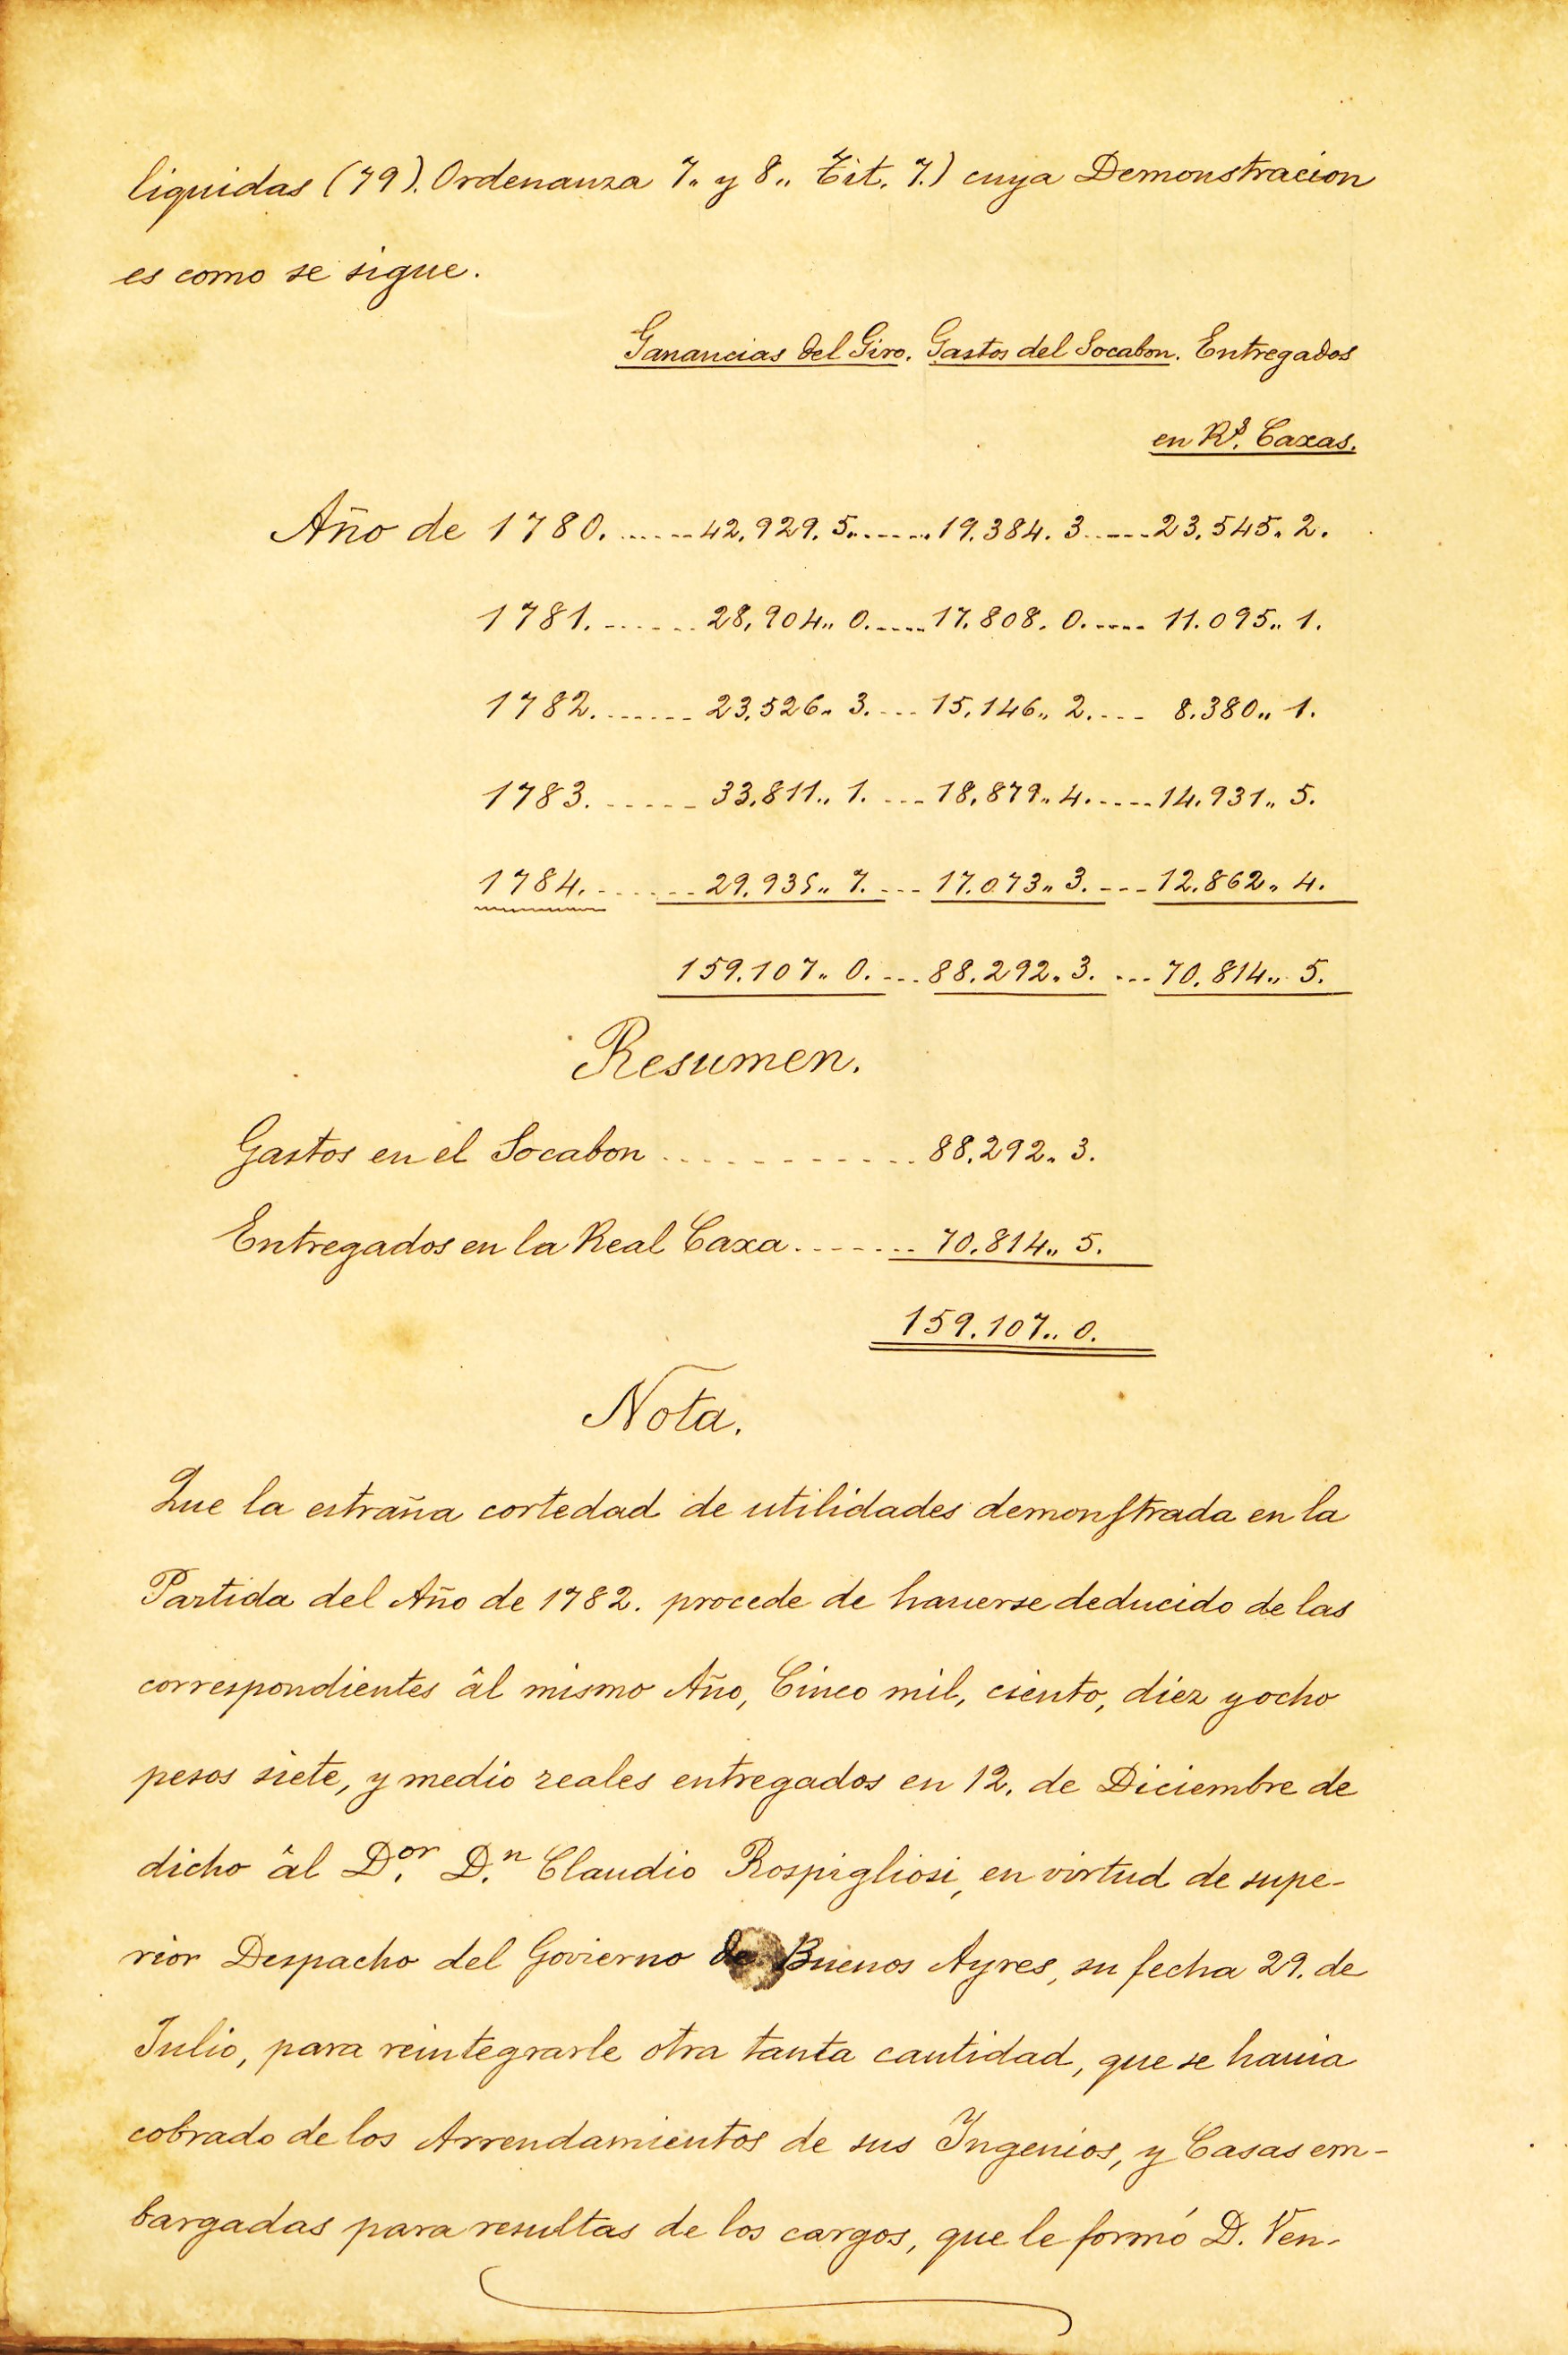 liquidas (79). Ordenanza 7.. y 8.. Tit. 7.) cuya Demonstracion
es como se sigue.
Ganancias del Giro. Gastos del Socabon. Entregados
en Rs. Caxas.
Año de 1780. ...... 42,929. 5. ...... 19.384. 3. ..... 23.545.. 2.
1781. ...... 28,904.. 0. ..... 17.808. 0. ..... 11.095.. 1.
1782. ...... 23,526.. 3. .... 15,146.. 2. .... 8.380.. 1.
1783. ...... 33,811.. 1. .... 18,879.. 4. ..... 14.931.. 5.
1784. ...... 29.935.. 7. .... 17.073.. 3. .... 12.862.. 4.
159.107.. 0. .... 88.292.. 3. .... 70.814.. 5.
Resumen.
Gastos en el Socabon ............ 88.292.. 3.
Entregados en la Real Caxa ....... 70.814.. 5.
159.107.. 0.
Nota.
Que la estraña cortedad de utilidades demonstrada en la
Partida del Año de 1782. procede de hauerse deducido de las
correspondientes âl mismo Año, Cinco mil, ciento, diez y ocho
pesos siete, y medio reales entregados en 12. de Diciembre de
dicho âl D.or D.n Claudio Rospigliosi, en virtud de supe-
rior Despacho del Govierno de Buenos Ayres, su fecha 29. de
Julio, para reintegrarle otra tanta cantidad, que se hauia
cobrado de los Arrendamientos de sus Ingenios, y Casas em-
bargadas para resultas de los cargos, que le formó D. Ven-